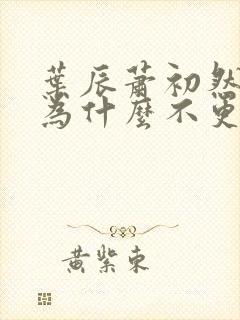 葉辰蕭初然
為什麼不更
黃紫東